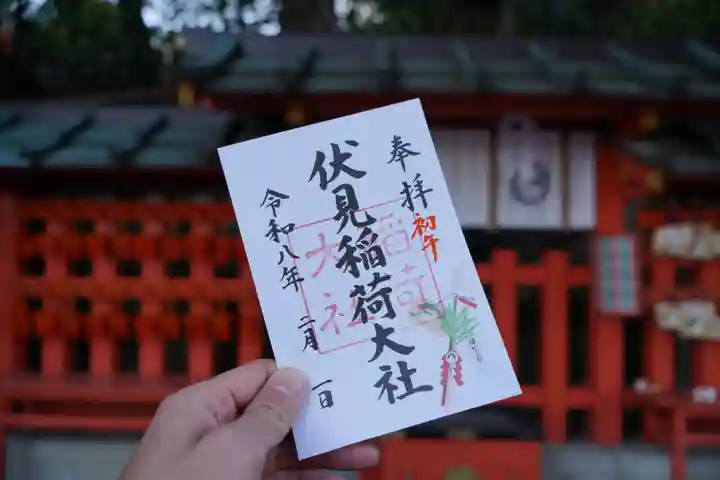 奉拝
初午
伏見稲荷大社
稲荷
大社
令和八年二月一日